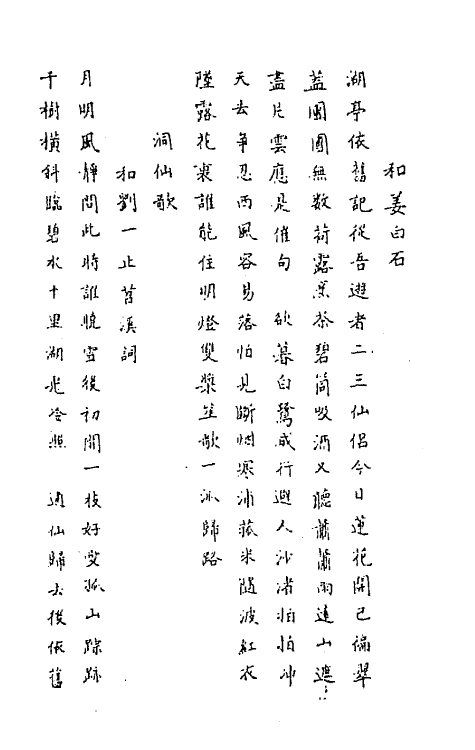 和姜白石
湖亭依舊記從吾遊者二三仙侶今日蓮花開已徧翠
蓋團團無數荷露烹茶碧筒吸酒又聽蕭蕭雨遠山遮
盡片雲應是催句　欲暮白鷺成行避人沙渚怕怕冲
天去争忍西風容易落怕見斷烟寒浦菰米隨波紅衣
墜露花裏誰能住明燈雙槳笙歌一派歸路
洞仙歌
和劉一止苕溪詞
月明風靜問此時誰曉雪後初開一枝好愛孤山踪跡
千樹橫斜臨碧水十里湖光冷照　逋仙歸去後依舊